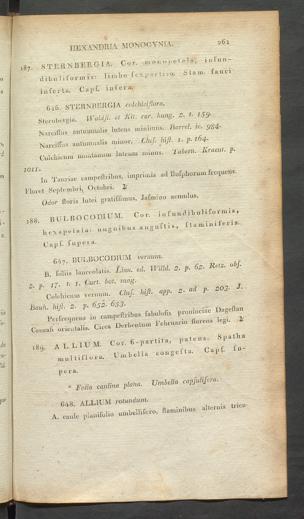 HEXANDRIA MONOGYNIA. 261
187. STERNBERGIA. Cor. monopetala, infun-
dibuliformis: limbo sexpartito. Stam. fauci
inserta. Caps. infera.
646. STERNBERGIA colchiciflora.
Sternbergia. Waldst. et Kit. rar. hung. 2. t. 159.
Narcissus autumnalis luteus minimus. Barrel. ic. 984.
Narcissus autumnalis minor. Clus. hist. 1. p. 164.
Colchicum montanum luteum minus. Tabern. Kraeut. p.
1011.
In Tauriae campestribus, imprimis ad Bosphorum frequens.
Floret Septembri, Octobri. ♃
Odor floris lutei gratissimus, Jasmino aemulus.
188. BULBOCODIUM. Cor. infundibuliformis,
hexapetala: unguibus angustis, staminiferis.
Caps. supera.
647. BULBOCODIUM vernum.
B. foliis lanceolatis. Linn. ed. Willd. 2. p. 62. Retz. obs.
2. p. 17. t. 1. Curt. bot. mag.
Colchicum vernum. Clus. hist. app. 2. ad p. 203. J.
Bauh. hist. 2. p. 652. 653.
Perfrequens in campestribus sabulosis provinciae Dagestan
Caucasi orientalis. Circa Derbentum Februario florens legi. ♃
189. ALLIUM. Cor. 6-partita, patens. Spatha
multiflora. Umbella congesta. Caps. su-
pera.
* Folia caulina plana. Umbella capsulifera.
648. ALLIUM rotundum.
A. caule planifolio umbellifero, staminibus alternis tricu-